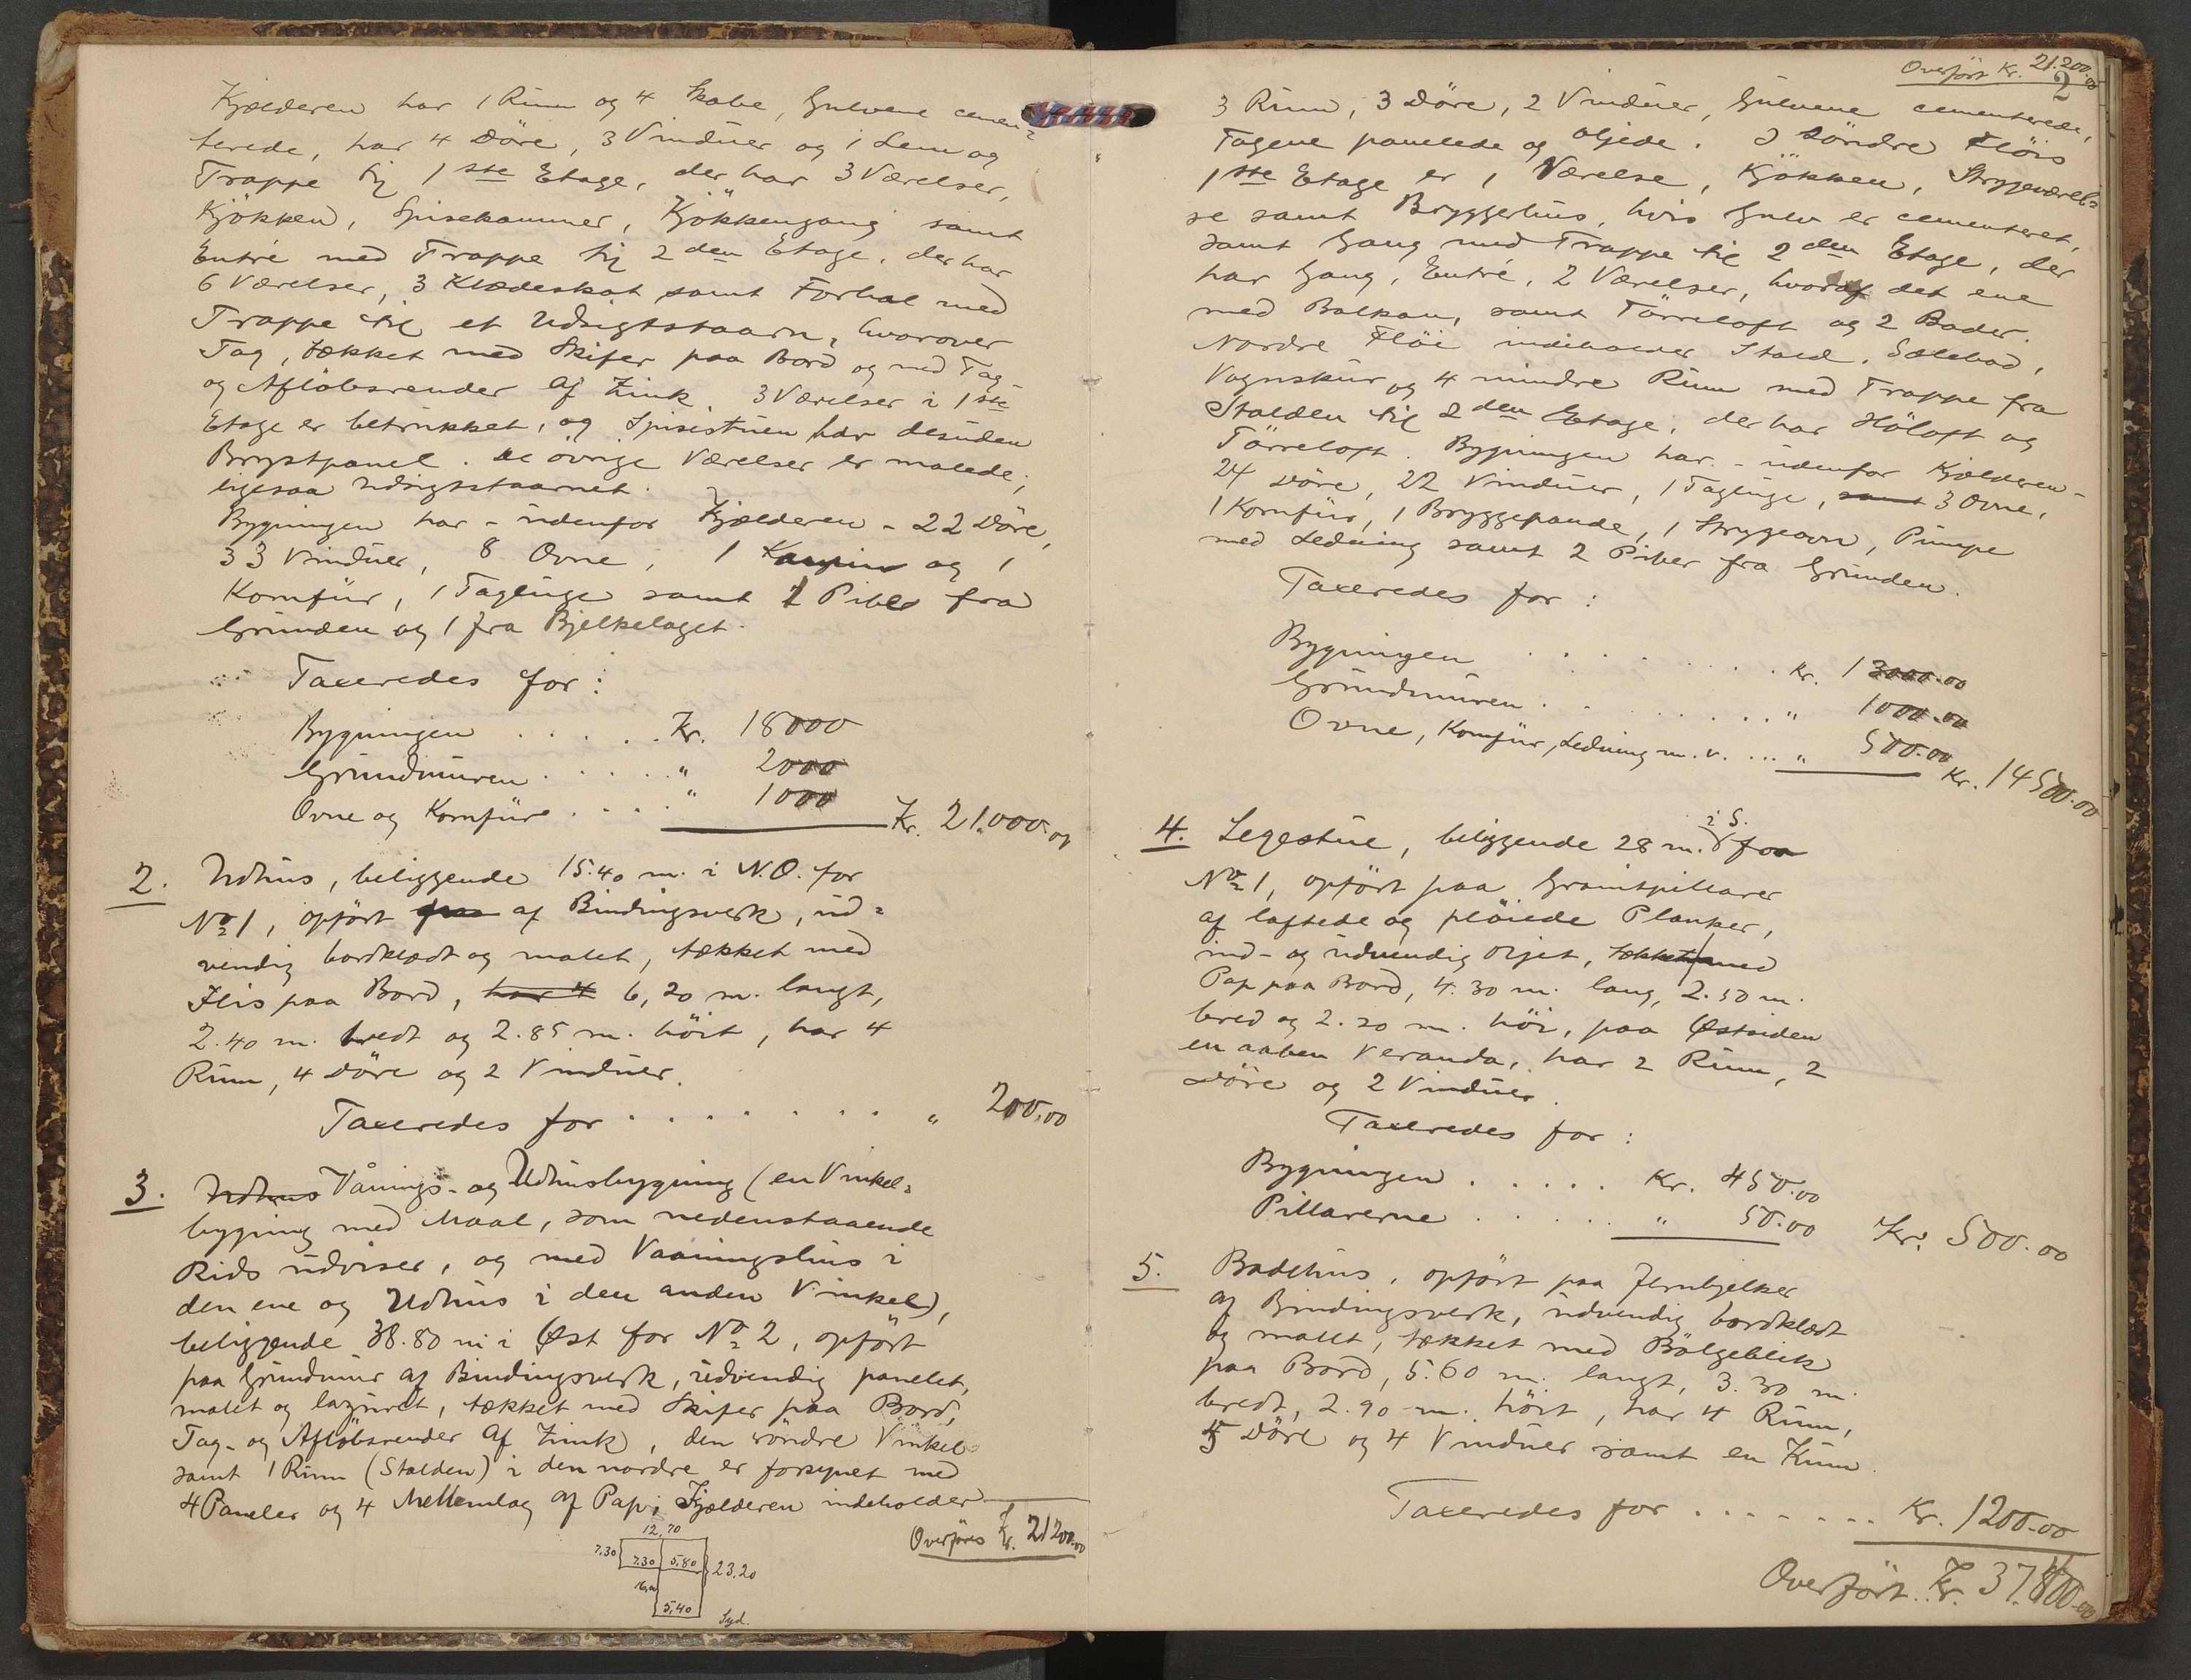 Kjælderen har 1 Rum og 4 Skabe, Gulvene cemen=
terede, har 4 Döre, 3 Vinduer og 1 Lem og
Trappe til 1ste Etage, der har 3 Værelser,
Kjökken, Spisekammer, Kjökkengang samt
Entré med Trappe til 2den Etage, der har
6 Værelser, 3 Klædeskab samt Forhal med
Trappe til et Udsigtstaarn, hvorover
Tag, tækket med Skifer paa Bord og med Tag-
og Aflöbsrender af Zink. 3 Værelser i 1ste
Etage er betrukket, og Spisestuen har desuden
Brystpanel. De övrige Værelser er malede;
ligesaa Udsigtstaarnet.
Bygningen har - udenfor Kjælderen - 22 Döre,
33 Vinduer, 8 Ovne, 1 Kamin og 1
Komfür, 1 Tagluge samt 2 Piber fra
Grunden og 1 fra Bjelkelaget.
Taxeredes for:
Bygningen . . . . . Kr. 18000
Grundmuren . . . . . " 2000
Ovne og Komfüre . . . . " 1000
Kr. 21.000.00
2. Udhus, beliggende 15.40 m. i N.O. for
No 1, opfört paa af Bindingsverk, ud=
vendig bordklædt og malet, tækket med
Flis paa Bord, har 4 6,20 m. langt,
2.40 m. bredt og 2.85 m. höit, har 4
Rum, 4 Döre og 2 Vinduer.
Taxeredes for . . . . . . . . " 200.00
3. Udhus Vånings- og Udhusbygning (en Vinkel=
bygning med Maal, som nedenstaaende
Rids udviser, og med Vaaningshus i
den ene og Udhus i den anden Vinkel),
beliggende 38.80 m i Øst for No 2, opfört
paa Grundmur af Bindingsverk, udvendig panelet,
malet og lazuret, tækket med Skifer paa Bord,
Tag- og Aflöbsrender af Zink, den söndre Vinkel
samt 1 Rum (Stalden) i den nordre er forsynet med
4 Paneler og 4 Mellemlag af Pap; Kjælderen indeholder
Overföres Kr. 21200.00
12,70
7.30 7.30 5,80 23,20
5,40
Syd.
Overfört Kr. 21.200.00
2
3 Rum, 3 Döre, 2 Vinduer, Gulvene cementerede,
Tagene panelede og oljede. I Söndre Flöis
1ste Etage er 1 Værelse, Kjökken, Strygeværel=
se samt Bryggerhus, hvis Gulv er cementeret,
samt Gang med Trappe til 2den Etage, der
har Gang, Entré, 2 Værelser, hvoraf det ene
med Balkon, samt Törreloft og 2 Boder.
Nordre Flöi indeholder Stald, Sælebod,
Vognskur og 4 mindre Rum med Trappe fra
Stalden til 2den Etage, der har Höloft og
Törreloft. Bygningen har - udenfor Kjælderen -
24 Döre, 22 Vinduer, 1 Tagluge, samt 3 Ovne,
1 Komfür, 1 Bryggepande, 1 Strygeovn, Pumpe
med Ledning samt 2 Piber fra Grunden.
Taxeredes for:
Bygningen . . . . . . . . Kr. 13000.00
Grundmuren . . . . . . . . " 1000.00
Ovne, Komfür, Ledning m. v. . . . " 500.00
Kr. 14500.00
4. Legestue, beliggende 28 m. i S. for
No 1, opfört paa Granitpillarer
af laftede og plöiede Planker,
ind- og udvendig oljet, tækket med
Pap paa Bord, 4.30 m. lang, 2.50 m.
bred og 2.20 m. höi, paa Østsiden
en aaben Veranda, har 2 Rum, 2
Döre og 2 Vinduer.
Taxeredes for:
Bygningen . . . . . Kr. 450.00
Pillarerne . . . . . " 50.00
Kr. 500.00
5. Badehus, opfört paa Jernbjelker
af Bindingsverk, udvendig bordklædt
og malet, tækket med Bölgeblik
paa Bord, 5.60 m. langt, 3.30 m.
bredt, 2.90 m. höit, har 4 Rum,
5 Döre og 4 Vinduer samt en Kum.
Taxeredes for . . . . . . . Kr. 1200.00
Overfört Kr. 37.400.00